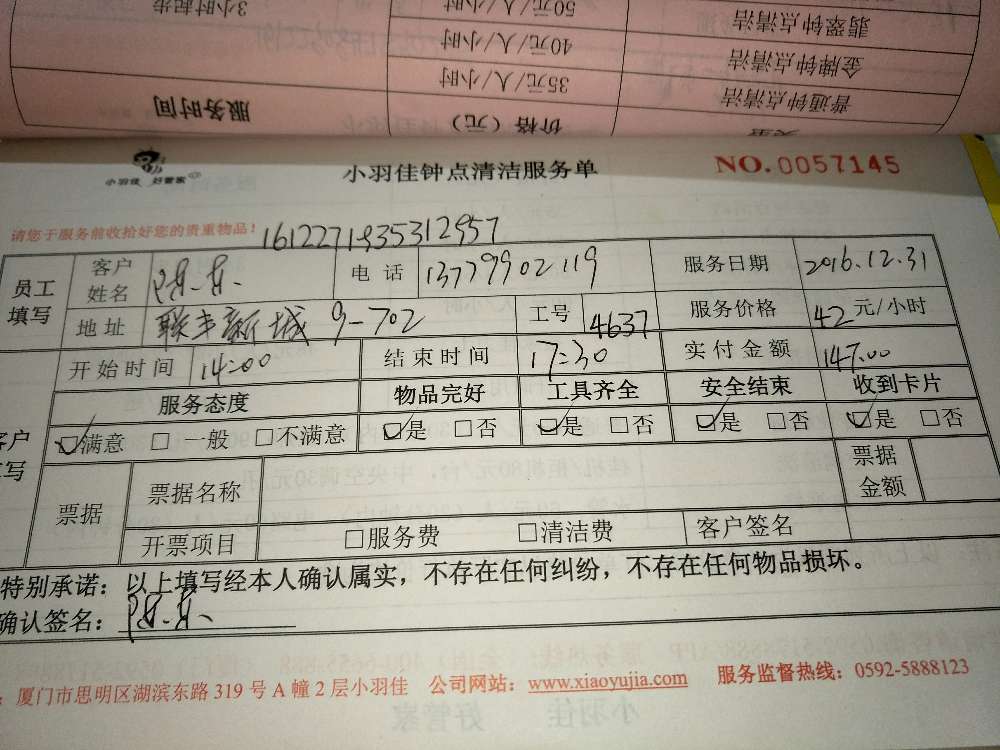 3小时起步
50元/人/小时
翡翠钟点清洁
40元/人/小时
金牌钟点清洁
35元/人/小时
普通钟点清洁
服务时间
价格（元）
小羽佳 好管家
小羽佳钟点清洁服务单
NO.0057145
请您于服务前收拾好您的贵重物品！
员工填写 客户姓名 电话 13779902119 服务日期 2016.12.31
地址 联丰新城 9-702 工号 4637 服务价格 42元/小时
开始时间 14:00 结束时间 17:30 实付金额 147.00
服务态度 物品完好 工具齐全 安全结束 收到卡片
☑满意 □一般 □不满意 ☑是 □否 ☑是 □否 ☑是 □否 ☑是 □否
票据 票据名称 票据金额
开票项目 □服务费 □清洁费 客户签名
特别承诺：以上填写经本人确认属实，不存在任何纠纷，不存在任何物品损坏。
确认签名：
厦门市思明区湖滨东路 319 号 A 幢 2 层小羽佳 公司网站：www.xiaoyujia.com 服务监督热线：0592-5888123